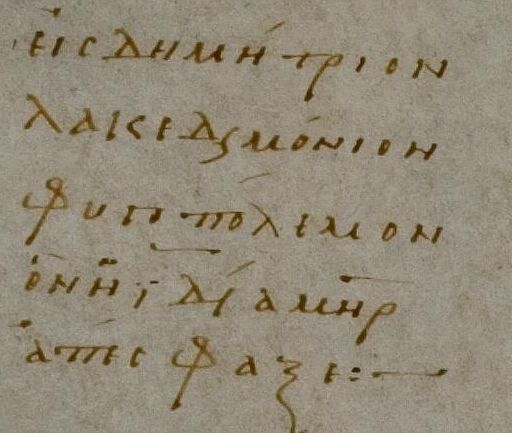 εἰς δημήτριον
λακεδαιμόνιον
φυγοπόλεμον
ὃν ἡ ἰδία μη̅ρ
ἀπέσφαξε:—